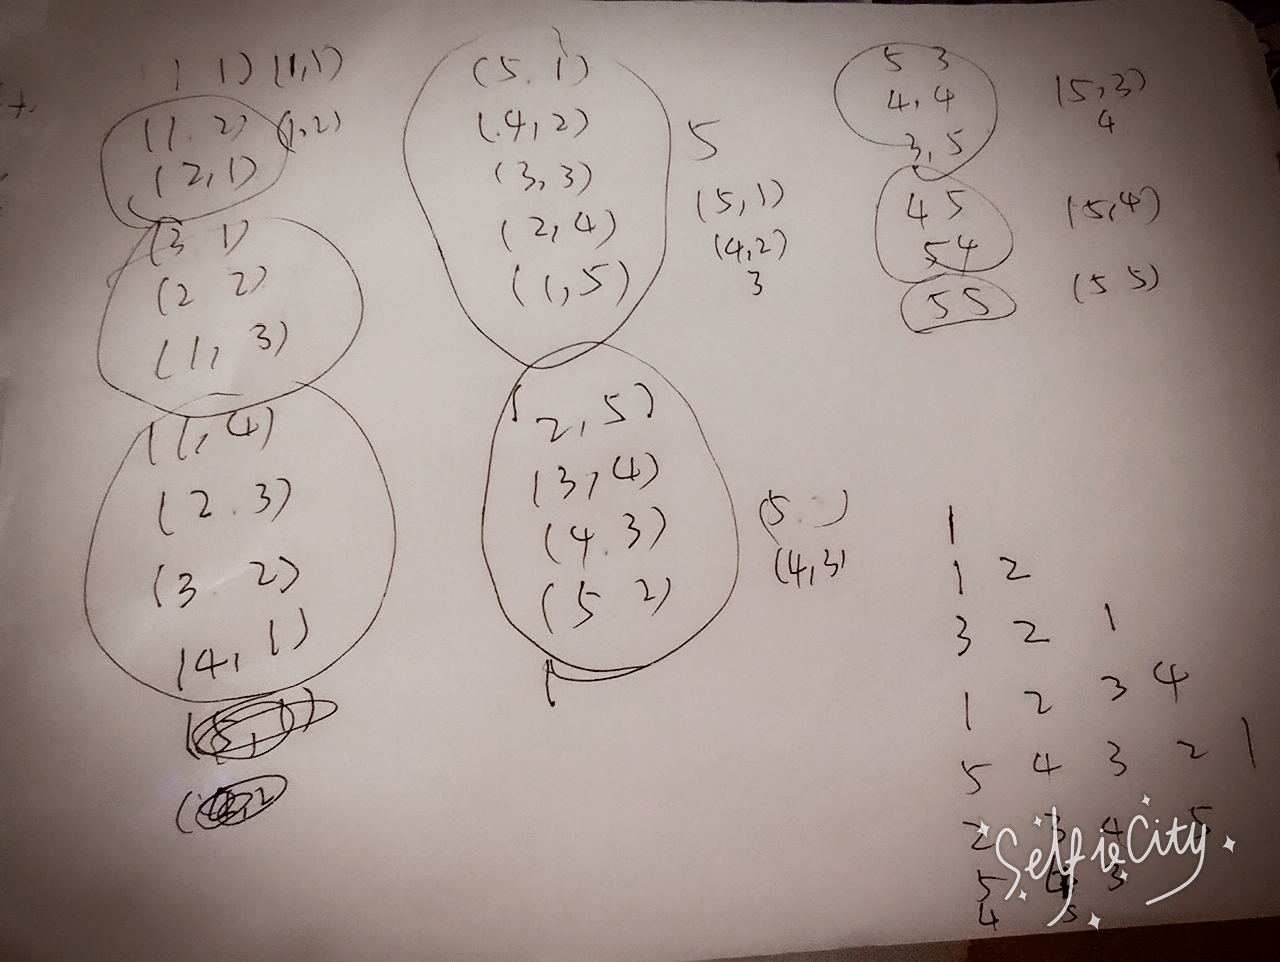 1 1) (1,1)
(1. 2) (1,2)
(2,1)
(3 1)
(2 2)
(1, 3)
(1, 4)
(2. 3)
(3 2)
(4, 1)
(5. 1)
(4, 2)
(3, 3)
(2, 4)
(1, 5)
5
(5, 1)
(4,2)
3
(2, 5)
(3, 4)
(4. 3)
(5 2)
(5. )
(4,3)
5 3
4, 4
3, 5
(5,3)
4
4 5
5 4
(5,4)
5 5
(5 5)
1
1 2
3 2 1
1 2 3 4
5 4 3 2 1
2 3 4 5
5 4 3
4 5
Selfie City